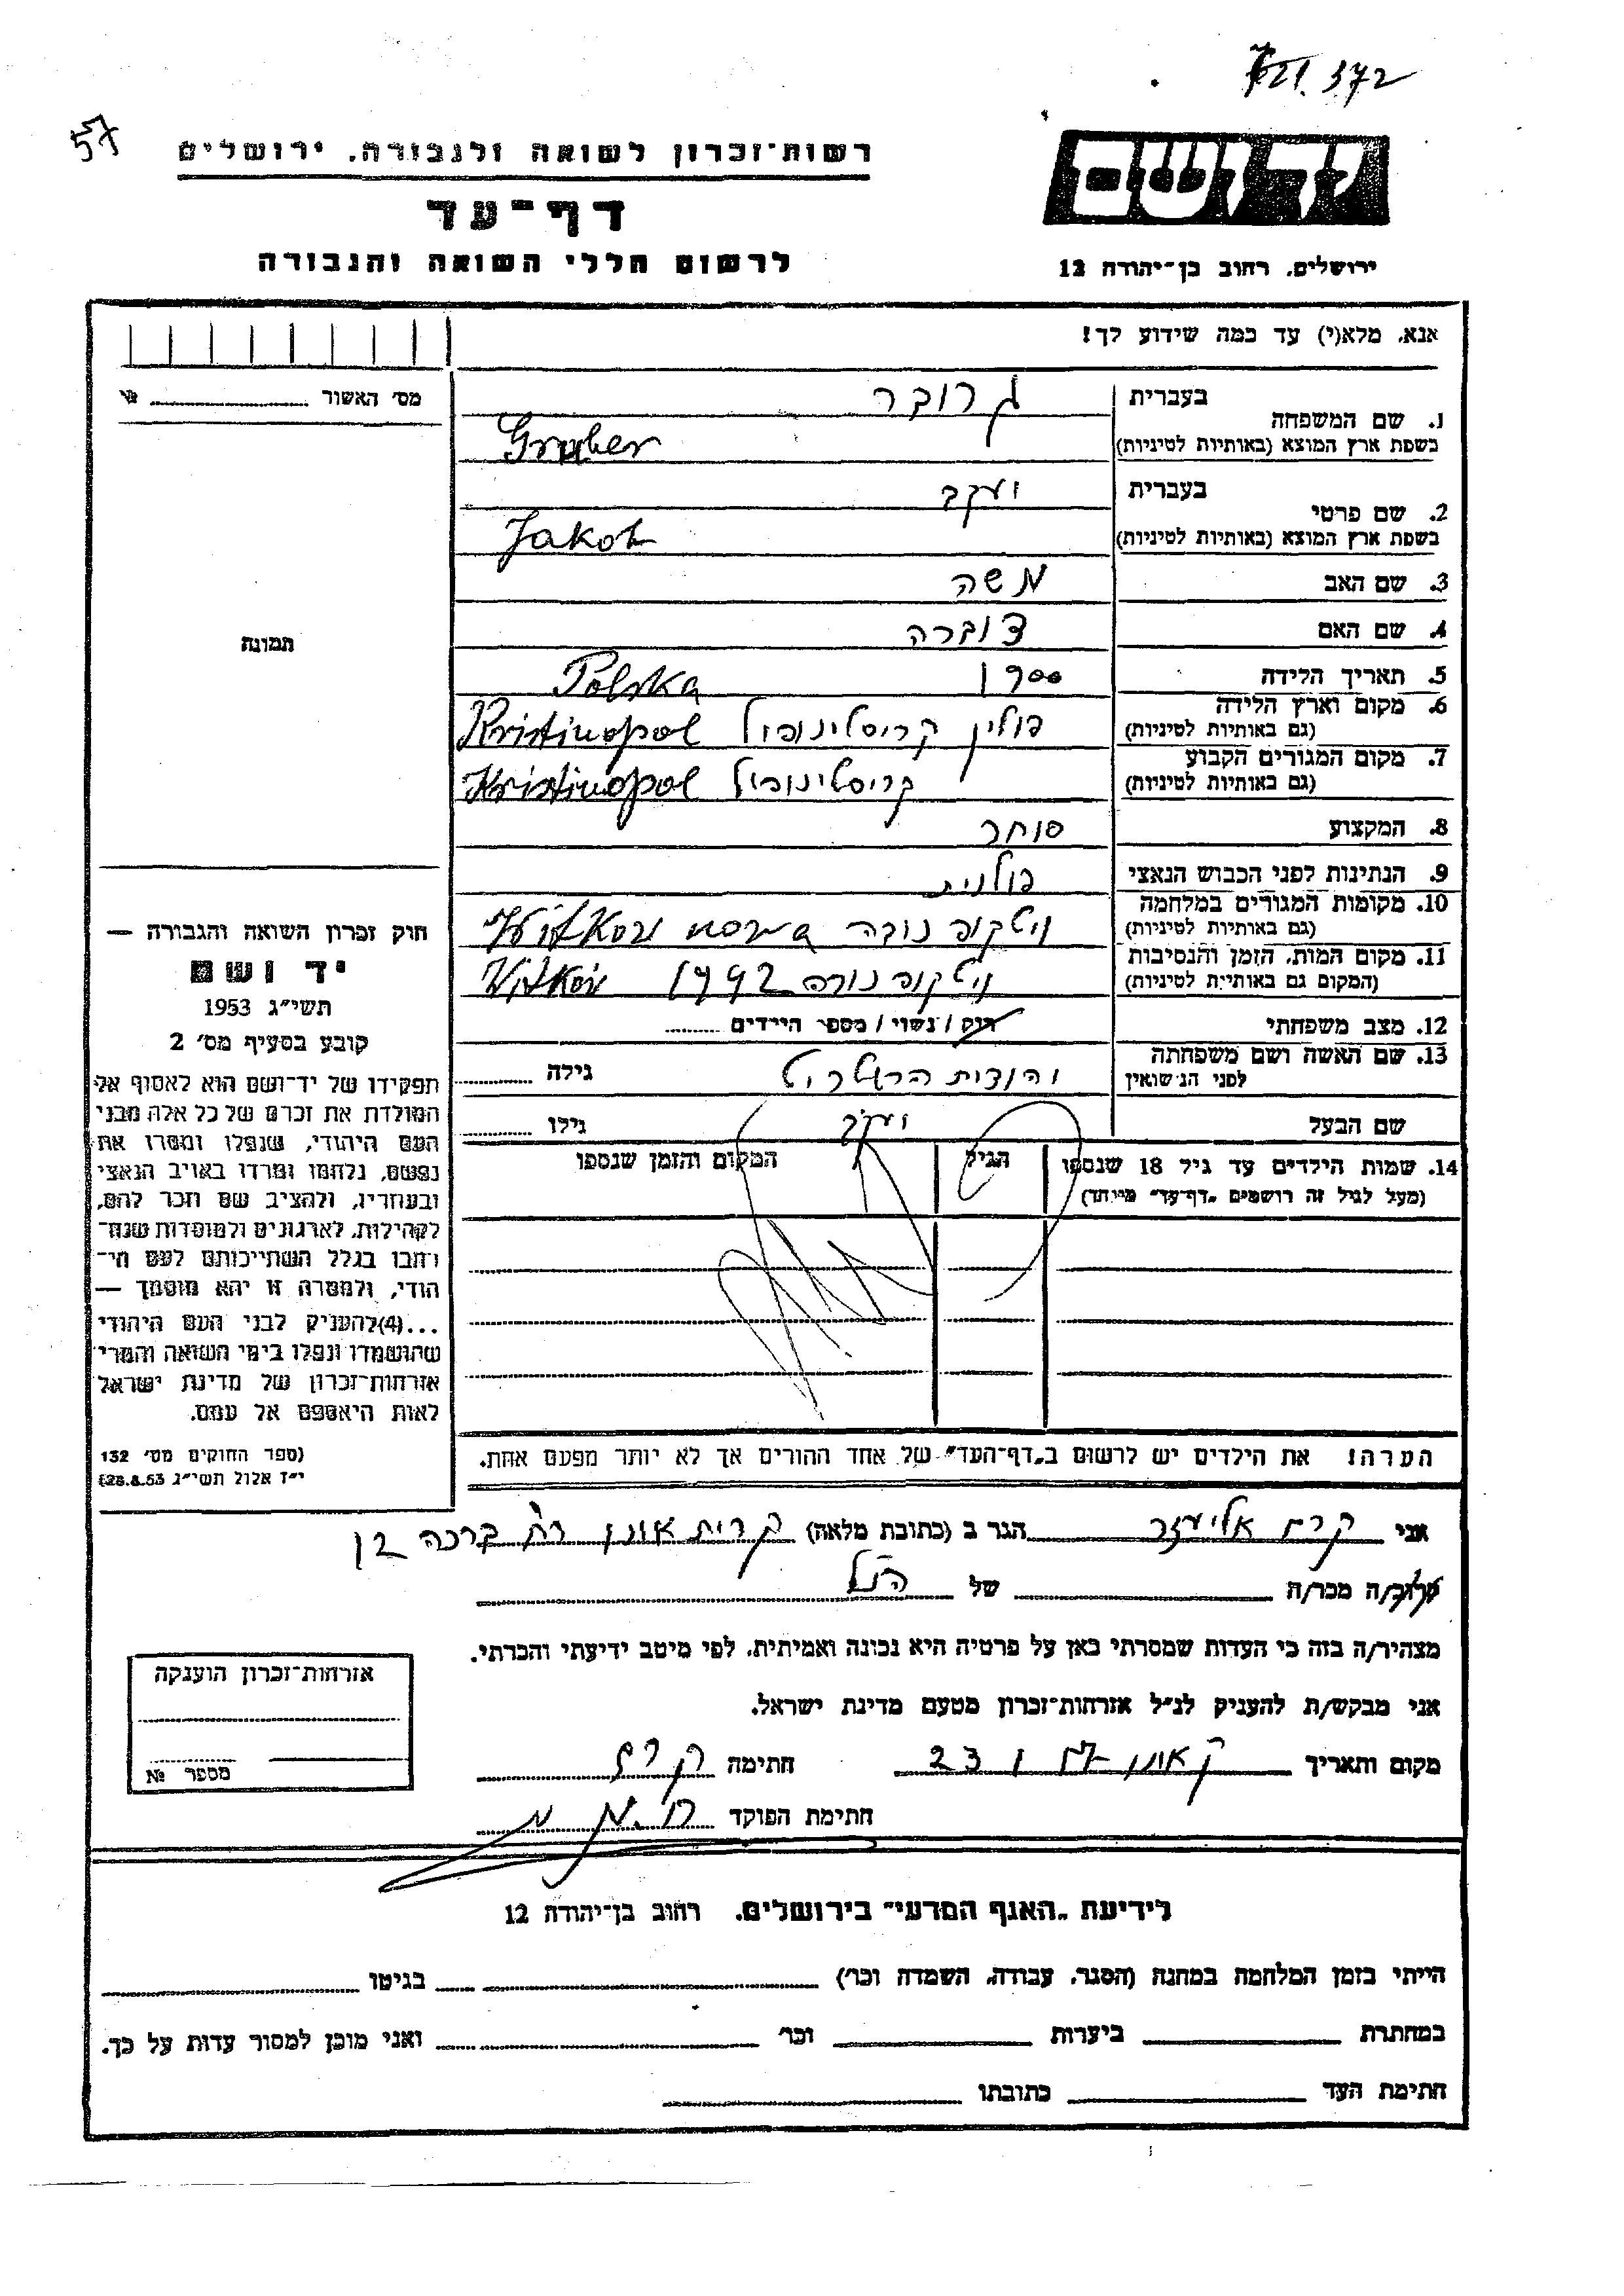 721.372
57
רשות־זכרון לשואה ולגבורה, ירושלים
דף־עד
לרשום חללי השואה והגבורה
יד ושם
ירושלים, רחוב בן־יהודה 12
אנא, מלא(י) עד כמה שידוע לך!
מס׳ האשור №
1. שם המשפחה
בעברית גרובר
בשפת ארץ המוצא (באותיות לטיניות) Gruber
2. שם פרטי
בעברית יעקב
בשפת ארץ המוצא (באותיות לטיניות) Jakob
3. שם האב משה
4. שם האם דוברה
5. תאריך הלידה 1900 Polska
6. מקום וארץ הלידה
(גם באותיות לטיניות) פולין קריסטינופול Kristinopol
7. מקום המגורים הקבוע
(גם באותיות לטיניות) קריסטינופול Kristinopol
8. המקצוע סוחר
9. הנתינות לפני הכבוש הנאצי פולנית
10. מקומות המגורים במלחמה
(גם באותיות לטיניות) ויטקוב נובה Witkow nowa
11. מקום המות, הזמן והנסיבות
(המקום גם באותיות לטיניות) ויטקוב נובה 1942 Witkow
12. מצב משפחתי רוק / נשוי / מספר הילדים
13. שם האשה ושם משפחתה
לפני הנשואין יהודית גילה
שם הבעל יעקב גילו
14. שמות הילדים עד גיל 18 שנספו
(מעל לגיל זה רושמים "דף־עד" מיוחד)
הגיל
המקום והזמן שנספו
הערה! את הילדים יש לרשום ב"דף־העד" של אחד ההורים אך לא יותר מפעם אחת.
תמונה
חוק זכרון השואה והגבורה —
יד ושם
תשי״ג 1953
קובע בסעיף מס׳ 2
תפקידו של יד־ושם הוא לאסוף אל
המולדת את זכרם של כל אלה מבני
העם היהודי, שנפלו ומסרו את
נפשם, נלחמו ומרדו באויב הנאצי
ובעוזריו, ולהציב שם וזכר להם,
לקהילות, לארגונים ולמוסדות שנח־
רבו בגלל השתייכותם לעם הי־
הודי, ולמטרה זו יהא מוסמך —
...(4)להעניק לבני העם היהודי
שהושמדו ונפלו בימי השואה והמרי
אזרחות־זכרון של מדינת ישראל
לאות היאספם אל עמם.
(ספר החוקים מס׳ 132
י״ז אלול תשי״ג 28.8.53)
אני קרח אליעזר הגר ב (כתובת מלאה) קרית אונו רח ברכה
קרוב/ה מכר/ה של הנ״ל
מצהיר/ה בזה כי העדות שמסרתי כאן על פרטיה היא נכונה ואמיתית, לפי מיטב ידיעתי והכרתי.
אני מבקש/ת להעניק לנ״ל אזרחות־זכרון מטעם מדינת ישראל.
מקום ותאריך ק אונו 23 חתימה קרח
חתימת הפוקד
אזרחות־זכרון הוענקה
מספר №
לידיעת "האגף המדעי" בירושלים, רחוב בן־יהודה 12
הייתי בזמן המלחמה במחנה (הסגר, עבודה, השמדה וכו׳) בגיטו
במחתרת ביערות וכו׳ ואני מוכן למסור עדות על כך.
חתימת העד כתובתו